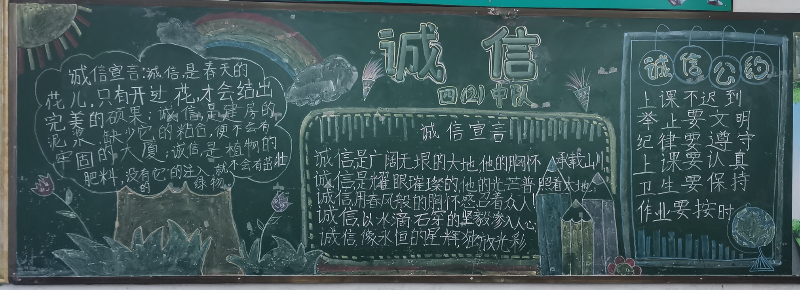 诚信
四(2)中队
诚信宣言:诚信,是春天的
花儿,只有开过花,才会结出
完美的硕果;诚信,是建房的
泥浆,缺少它的粘合,便不会有
牢固的大厦;诚信,是植物的
肥料,没有它的注入,就不会有茁壮
的绿物
诚信宣言
诚信,是广阔无垠的大地,他的胸怀承载山川
诚信,是耀眼璀璨的,他的光芒普照着大地
诚信,用春风般的胸怀感召着众人!
诚信,以水滴石穿的坚毅渗入人心
诚信,像永恒的星辉独放光彩
诚信公约
上课不迟到
举止要文明
纪律要遵守
上课要认真
卫生要保持
作业要按时